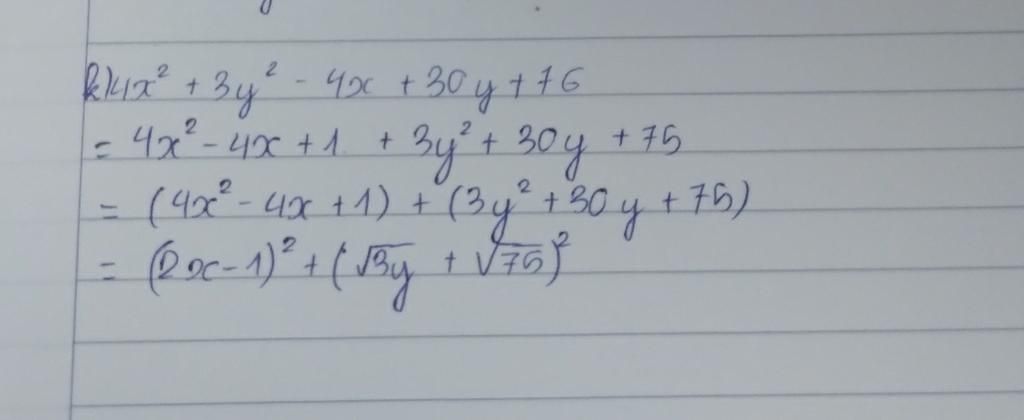 k) 4x² + 3y² - 4x + 30y + 76
= 4x² - 4x + 1 + 3y² + 30y + 75
= (4x² - 4x + 1) + (3y² + 30y + 75)
= (2x - 1)² + (√3y + √75)²